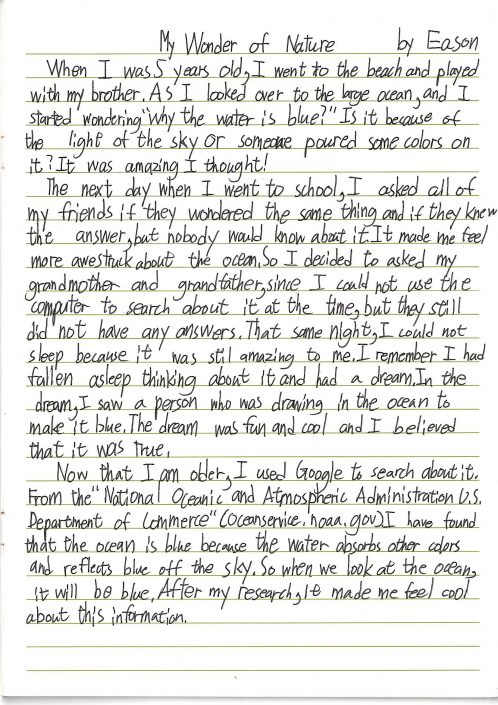 My Wonder of Nature by Eason
When I was 5 years old, I went to the beach and played
with my brother. As I looked over to the large ocean, and I
started wondering "why the water is blue?" Is it because of
the light of the sky or someone poured some colors on
it? It was amazing I thought!
The next day when I went to school, I asked all of
my friends if they wondered the same thing and if they knew
the answer, but nobody would know about it. It made me feel
more awestruck about the ocean. So I decided to asked my
grandmother and grandfather, since I could not use the
computer to search about it at the time, but they still
did not have any answers. That same night, I could not
sleep because it was still amazing to me. I remember I had
fallen asleep thinking about it and had a dream. In the
dream, I saw a person who was drawing in the ocean to
make it blue. The dream was fun and cool and I believed
that it was true.
Now that I am older, I used Google to search about it.
From the "National Oceanic and Atmospheric Administration U.S.
Department of Commerce" (oceanservice.noaa.gov) I have found
that the ocean is blue because the water absorbs other colors
and reflects blue off the sky. So when we look at the ocean,
it will be blue. After my research, it made me feel cool
about this information.